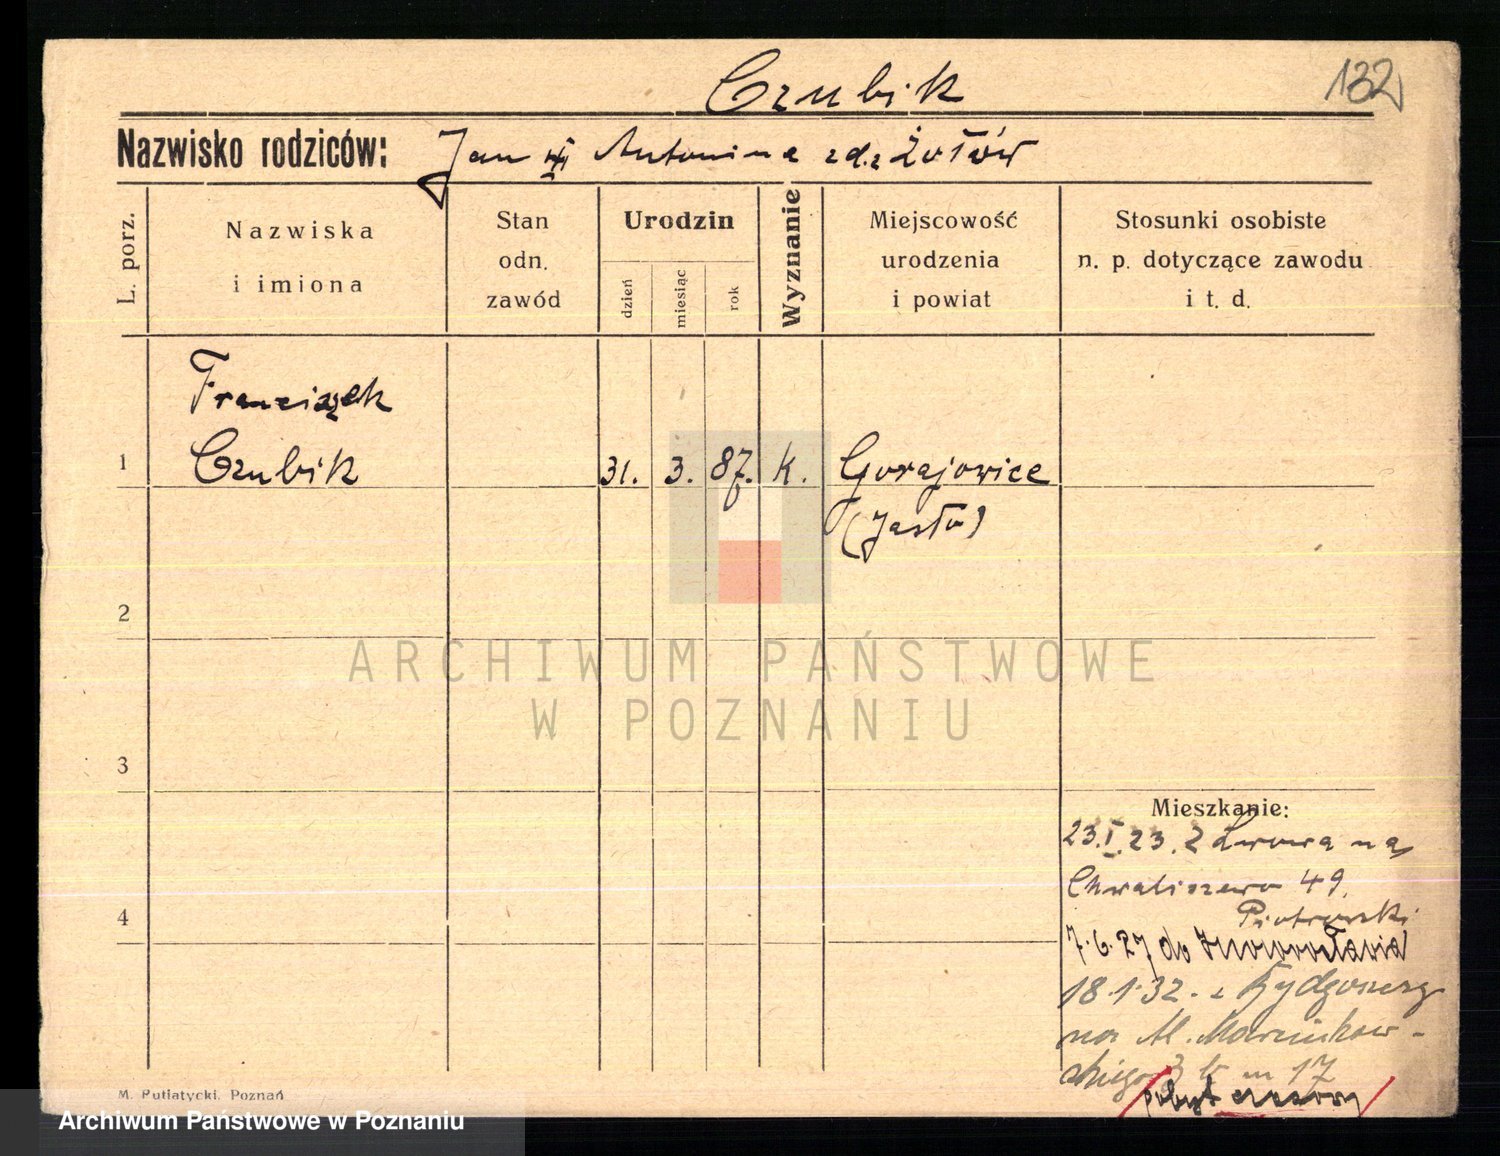 Czubik
132
Nazwisko rodziców: Jan i Antonina z d. z Żołów
L. porz.
Nazwiska i imiona
Stan odn. zawód
Urodzin
dzień
miesiąc
rok
Wyznanie
Miejscowość urodzenia i powiat
Stosunki osobiste n. p. dotyczące zawodu i t. d.
Franciszek
1 Czubik 31. 3. 87. k. Gorajowice
(Jasło)
2
3
4
ARCHIWUM PAŃSTWOWE
W POZNANIU
Mieszkanie:
23.I.23. z Lwowa na
Chwaliszewo 49.
Piotrowski
7.6.27 do Inowrocławia
18.1.32. z Bydgoszczy
na Al. Marcinkow-
skiego 3 b m 17
pobyt czasowy
M. Putiatycki, Poznań
Archiwum Państwowe w Poznaniu